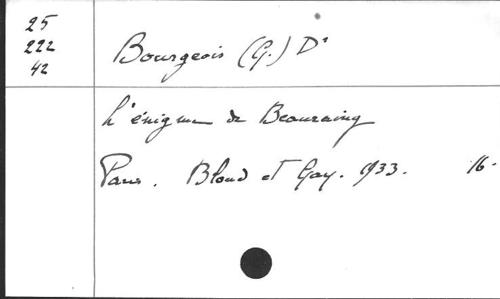 25
222
42
Bourgeois (G.) Dr
L'énigme de Beauraing
Paris. Bloud et Gay. 1933. 16-